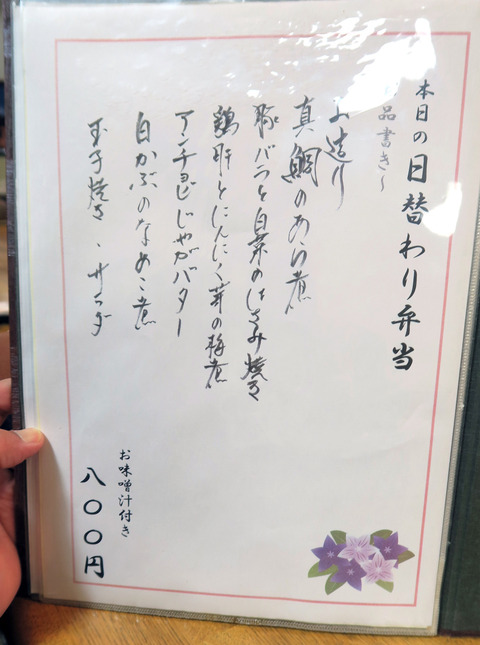 本日の日替わり弁当
品書き～
お造り
真鯛のあら煮
豚バラと白菜のはさみ焼き
鶏肝とにんにく芽の梅煮
アンチョビじゃがバター
白かぶのなめこ煮
玉子焼き、サラダ
お味噌汁付き
八〇〇円